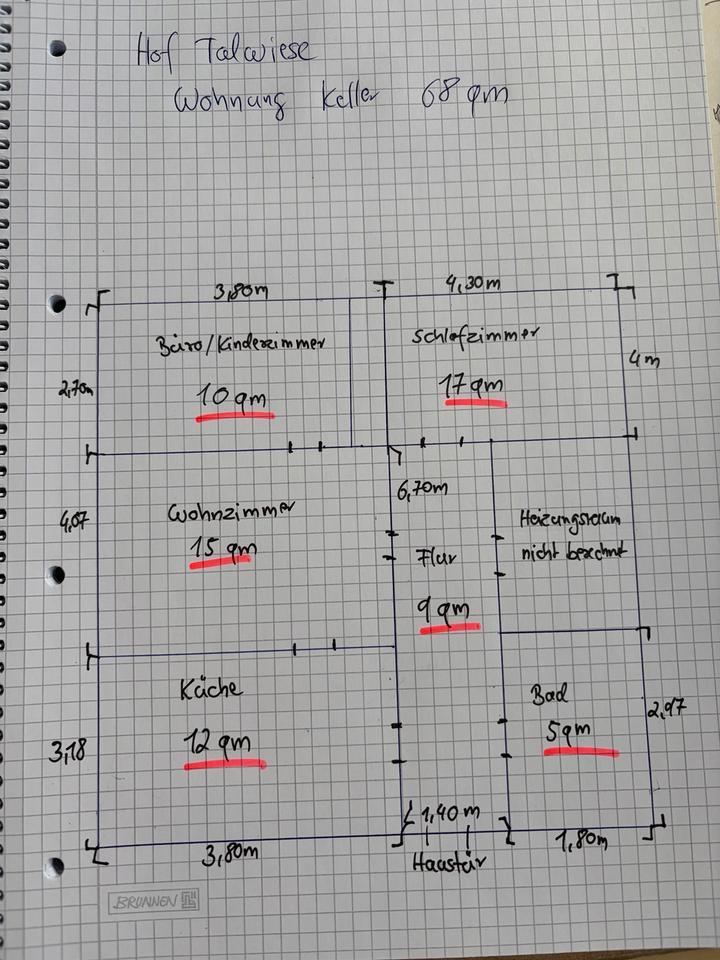 Hof Talwiese
Wohnung Keller 68 qm
3,80m
4,30m
Büro/Kinderzimmer
10 qm
Schlafzimmer
17 qm
2,70m
4m
6,70m
Wohnzimmer
15 qm
4,07
Flur
9 qm
Heizungsraum
nicht berechnet
Küche
12 qm
3,18
Bad
5qm
2,97
1,40m
3,80m
Haustür
1,80m
BRUNNEN